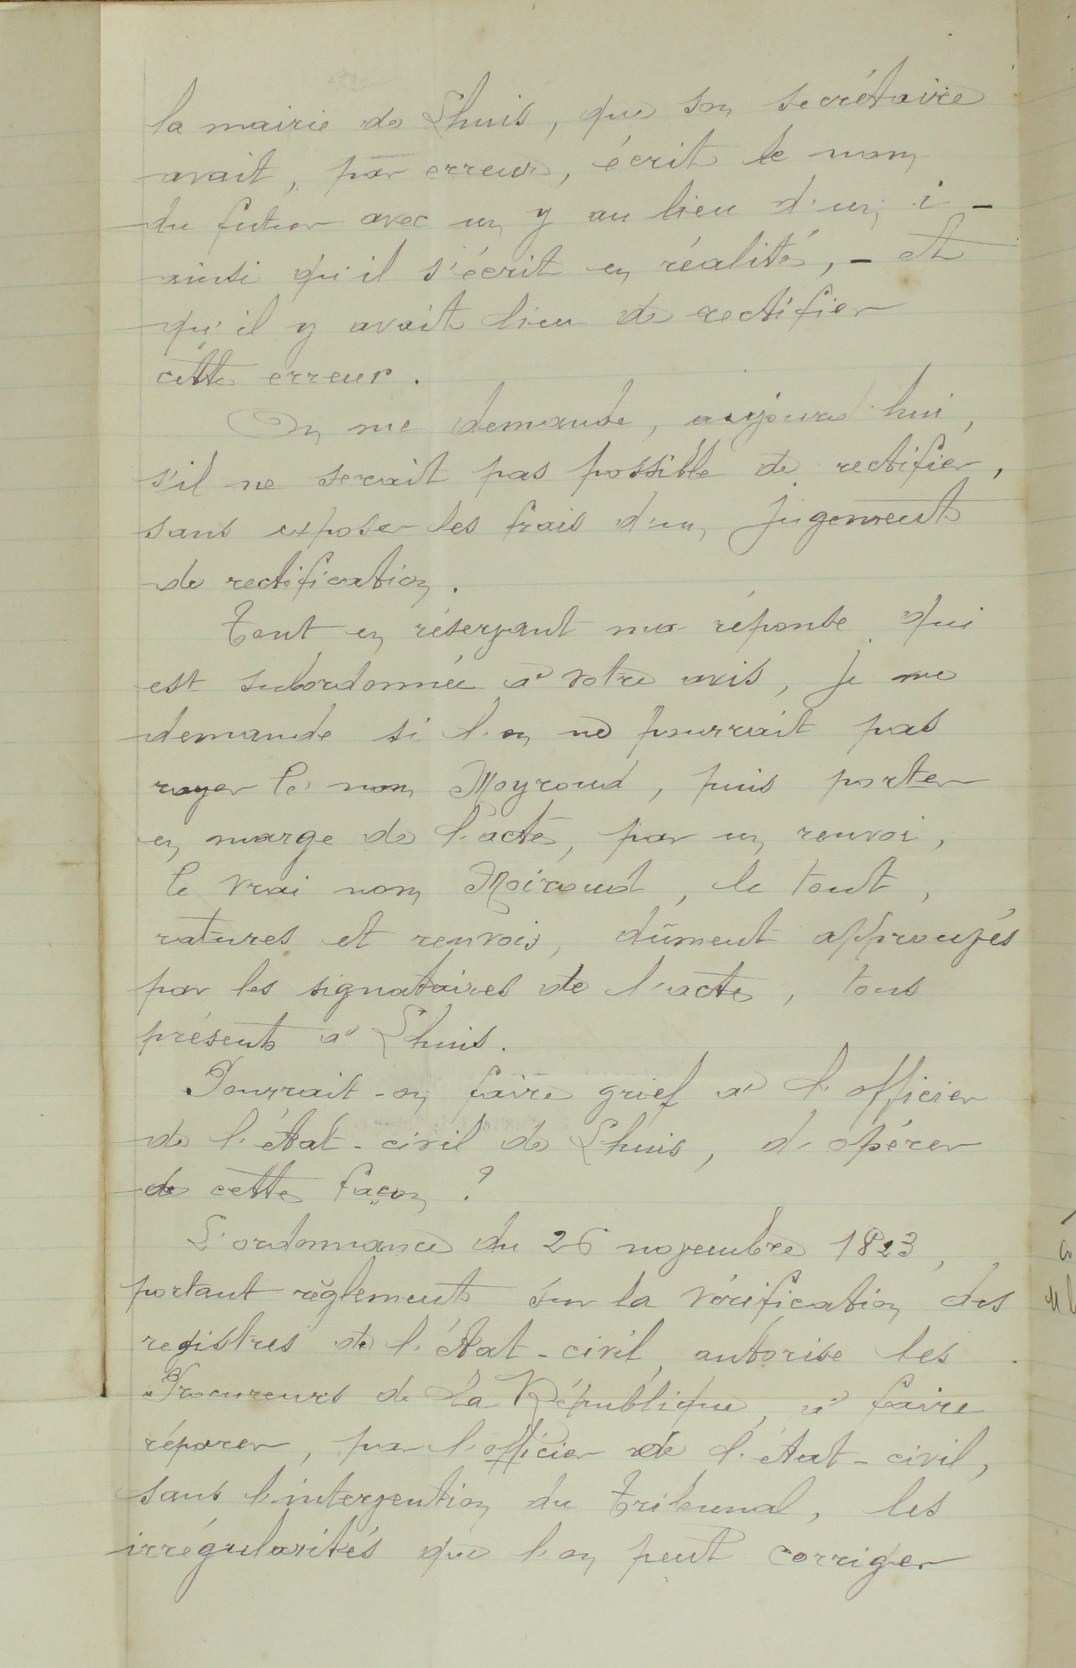 la mairie de Lhuis, que son secrétaire
avait, par erreur, écrit le nom
du futur avec un y au lieu d'un i -
ainsi qu'il s'écrit en réalité, - et
qu'il y avait lieu de rectifier
cette erreur.
On me demande, aujourd'hui,
s'il ne serait pas possible de rectifier,
sans exposer les frais d'un jugement
de rectification.
Tout en réservant ma réponse qui
est subordonnée à votre avis, je me
demande si l'on ne pourrait pas
rayer le nom Moyroud, puis porter
en marge de l'acte, par un renvoi,
le vrai nom Moiroud, le tout,
ratures et renvois, dûment approuvés
par les signataires de l'acte, tous
présents à Lhuis.
Pourrait-on faire grief à l'officier
de l'état-civil de Lhuis, d'opérer
de cette façon ?
L'ordonnance du 26 novembre 1823,
portant règlement sur la vérification des
registres de l'état-civil, autorise les
Procureurs de la République, à faire
réparer, par l'officier de l'état-civil,
sans l'intervention du Tribunal, les
irrégularités que l'on peut corriger